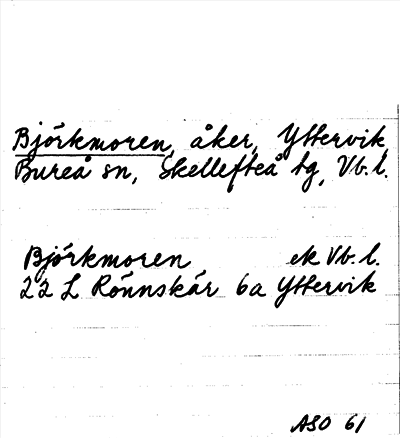 Björkmoren, åker, Yttervik,
Bureå sn, Skellefteå tg, Vb. l.
Björkmoren ek Vb. l.
22 L Rönnskär 6a Yttervik
ASO 61